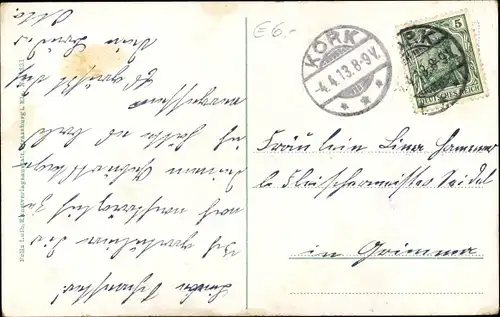 Liebe Schwester!
Ich gratuliere Dir
noch nachträglich zu
Deinem Geburtstage
ich hätte es bald
vergessen
Es grüßt Dich
Dein Bruder
Otto.
Felix Luib, Kunstverlagsanstalt, Strassburg i. E.
€6.-
KORK
4.4.13.8-9V.
5
DEUTSCHES REICH
Fräulein Lina
b. Fleischermeister Seidel
in Grimma